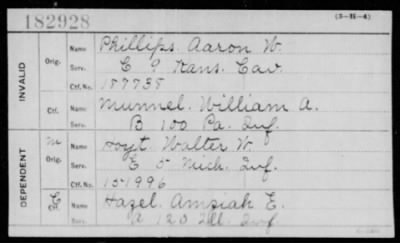 182928
(3-H-4)
INVALID
Orig. Name Phillips. Aaron W.
Serv. E 9 Kans. Cav.
Ctf. No. 187738
Ctf. Name Munnel. William A.
Serv. B 100 Pa. Inf.
DEPENDENT
M Orig. Name Hoyt. Walter W.
Serv. E 5 Mich. Inf.
Ctf. No. 151996
Ctf. Name Hazel. Amziah E.
Serv. A 120 Ill. Inf.